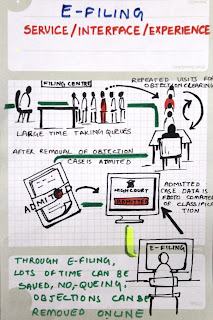 E-FILING
SERVICE/INTERFACE/EXPERIENCE
FILING CENTRE
REPEATED VISITS FOR
OBJECTION CLEARING
LARGE TIME TAKING QUEUES
AFTER REMOVAL OF OBJECTION
CASE IS ADMITED
ADMITED
HIGH COURT
ADMITTED
ADMITTED
CASE DATA IS
COMPUTER
OF CLASSIFICA
TION
E-FILING
THROUGH E-FILING,
LOTS OF TIME CAN BE
SAVED, NO-QUEING,
OBJECTIONS CAN BE
REMOVED ONLINE